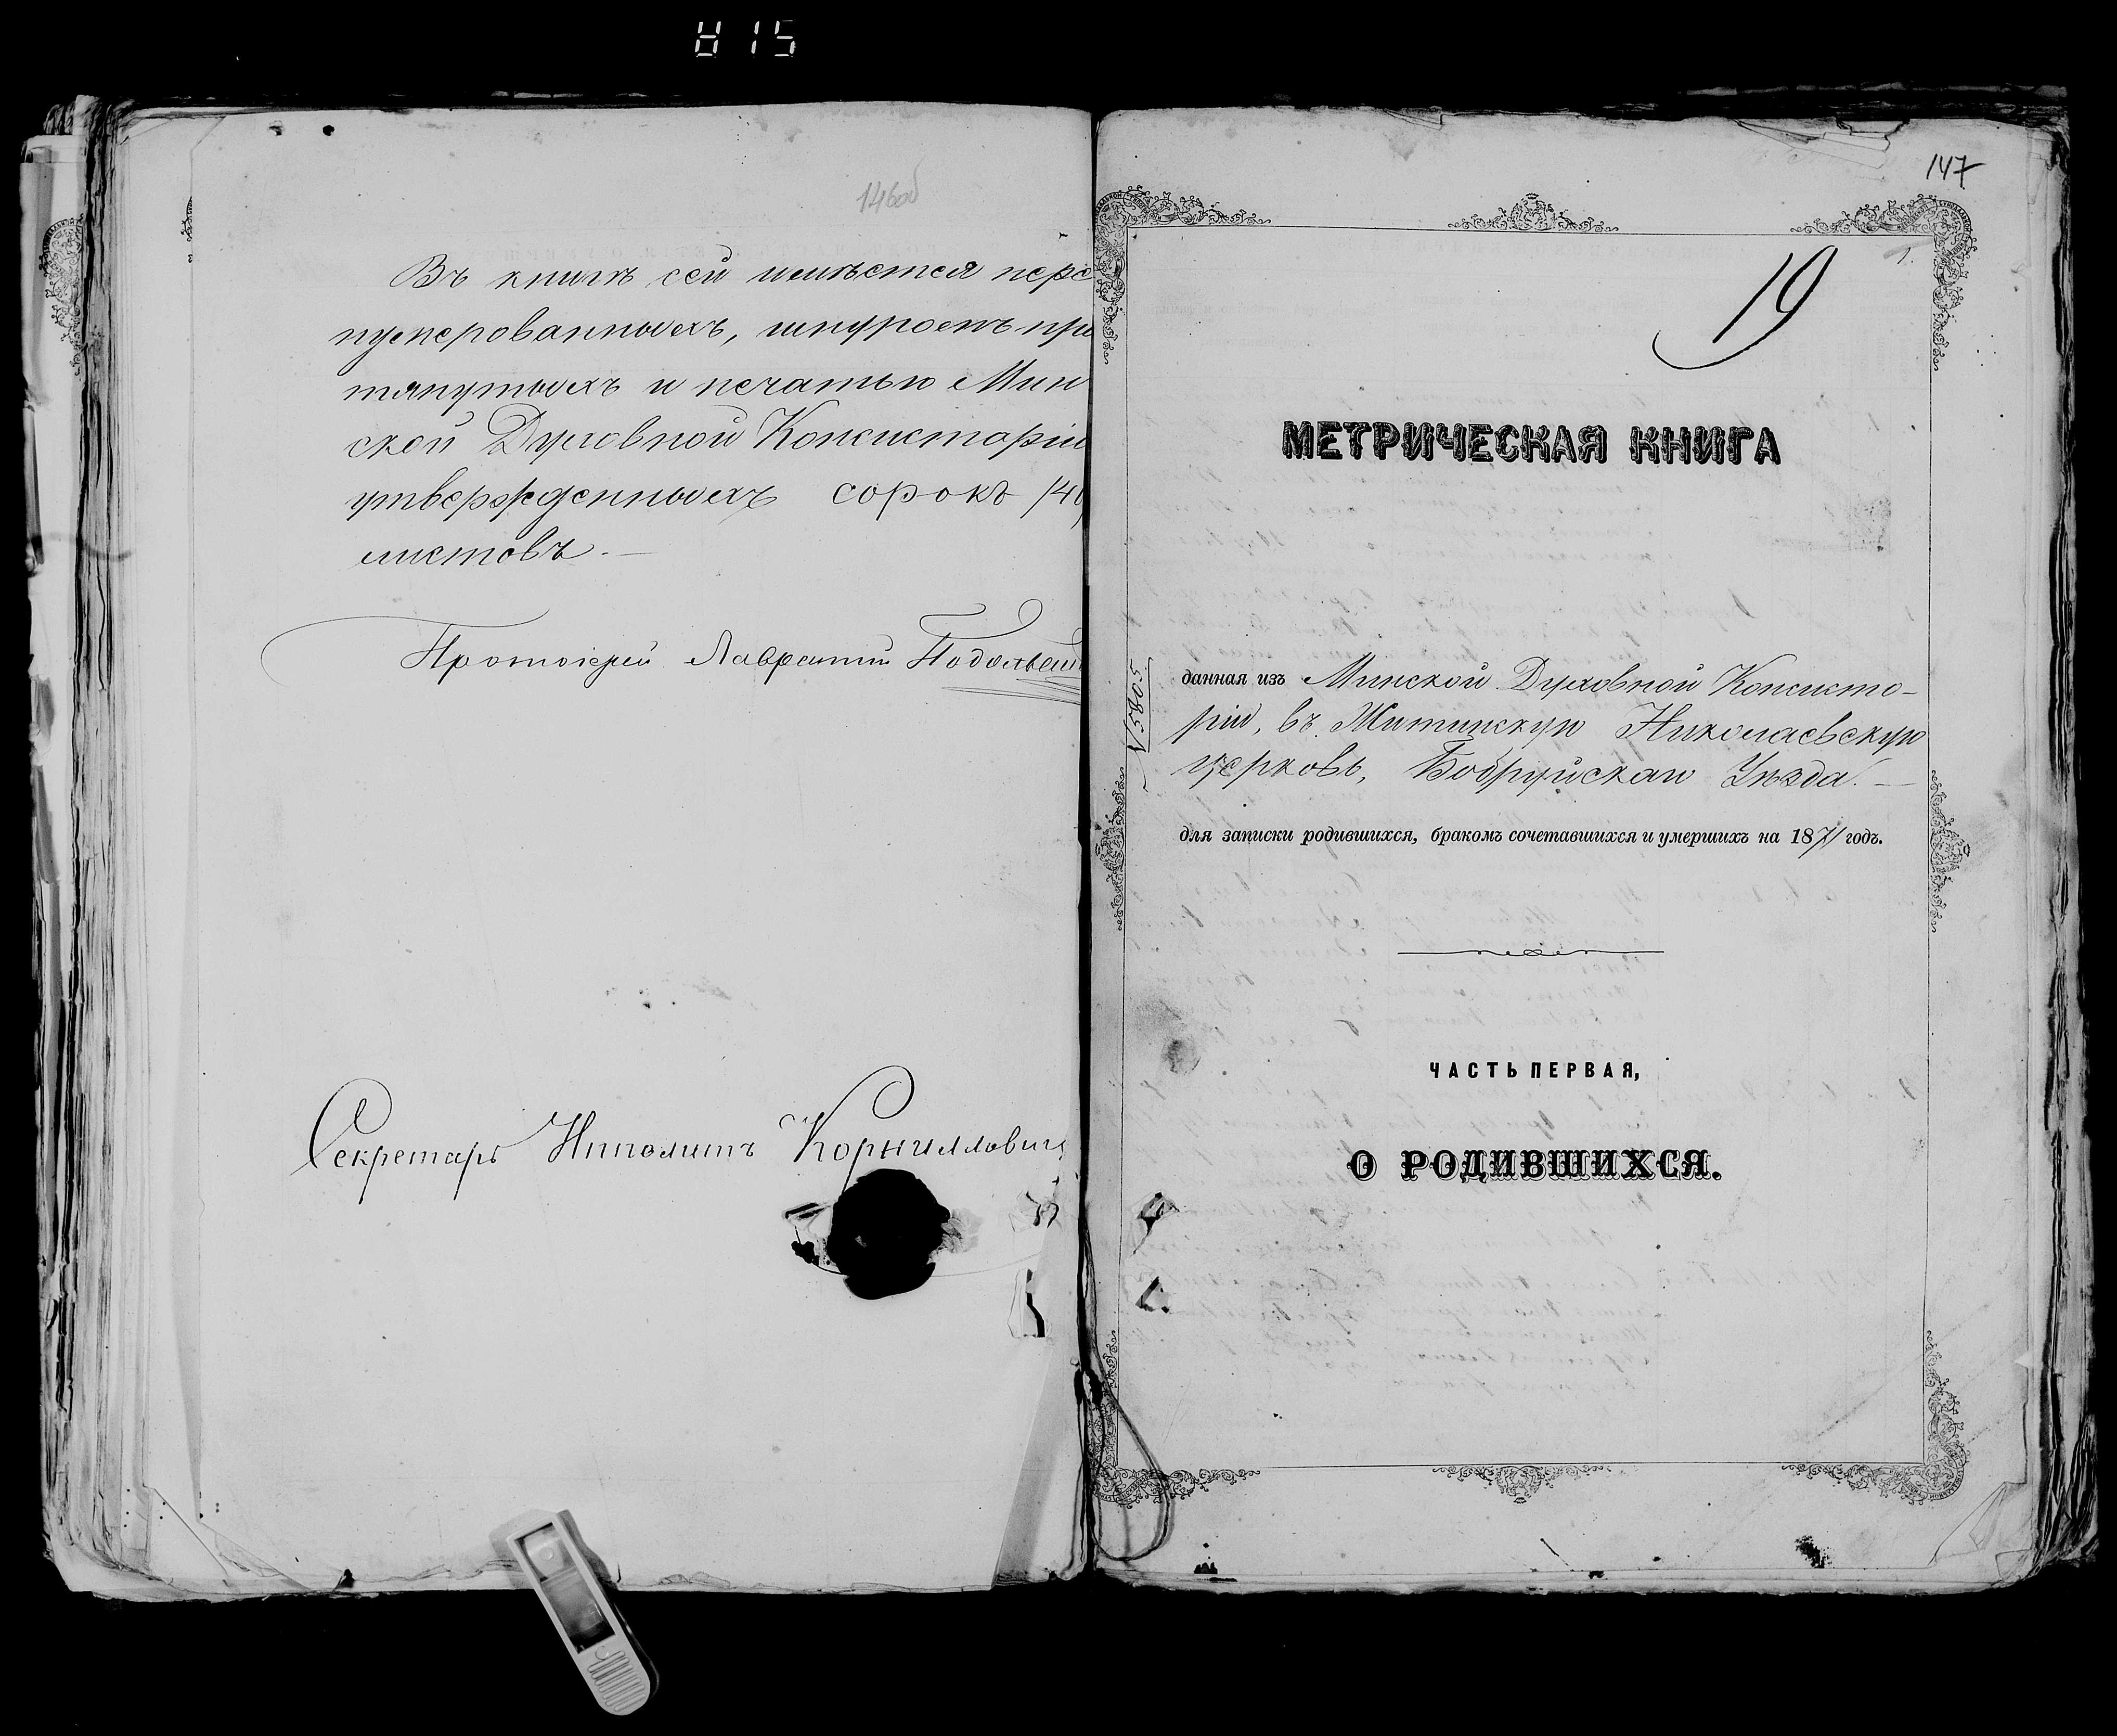 815
146об
Въ книгѣ сей имѣется пере
нумерованныхъ, шнуромъ при
тянутыхъ и печатью Мин
ской Духовной Консисторіи
утвержденныхъ сорокъ /40/
листовъ. —
Протоіерей Лаврентій
Секретарь Ипполитъ Корниллович
147
1.
19
МЕТРИЧЕСКАЯ КНИГА
№ 5805
данная изъ Минской Духовной Консисто-
ріи, въ Житинскую Николаевскую
церковь, Бобруйскаго Уѣзда. —
для записки родившихся, бракомъ сочетавшихся и умершихъ на 1871 годъ.
ЧАСТЬ ПЕРВАЯ,
О РОДИВШИХСЯ.